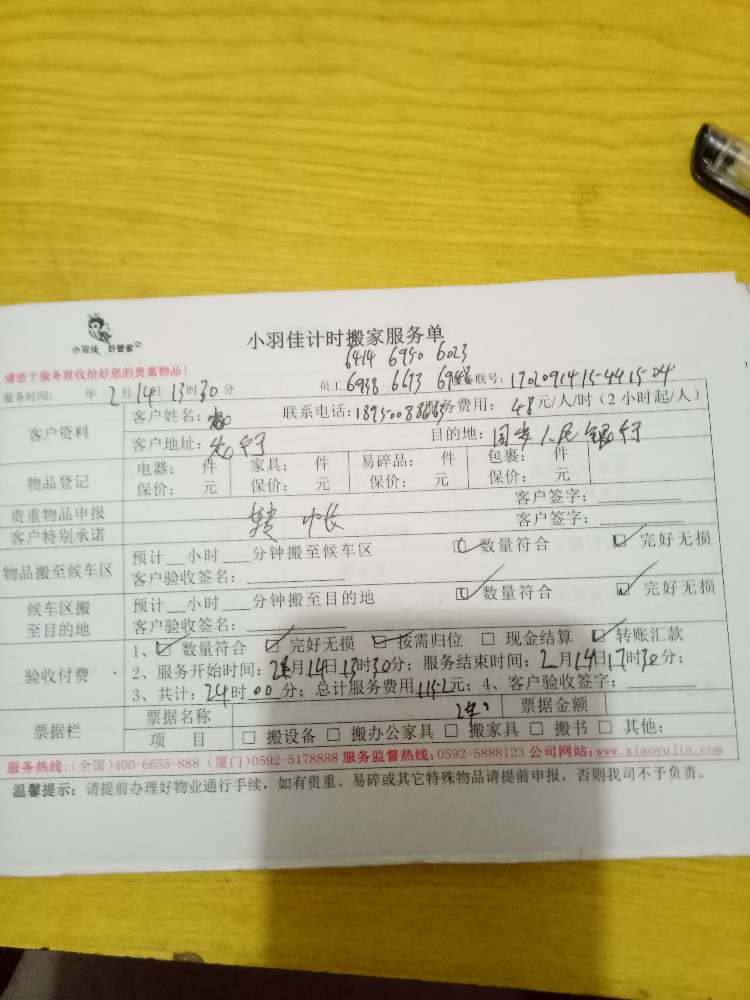 小羽佳 好管家
小羽佳计时搬家服务单
6414 6950 6023
请您于服务前收给好您的贵重物品!
员工 6938 6673 联号: 1702091415-4415-04
服务时间: 年 2月14日13时30分
客户资料 客户姓名: 联系电话: 务费用: 48元/人/时(2小时起/人)
客户地址: 行 目的地: 人民银行
物品登记 电器: 件 家具: 件 易碎品: 件 包裹: 件
保价: 元 保价: 元 保价: 元 保价: 元
贵重物品申报 客户签字:
客户特别承诺 转 客户签字:
物品搬至候车区 预计__小时__分钟搬至候车区 数量符合 完好无损
客户验收签名:
候车区搬至目的地 预计__小时__分钟搬至目的地 数量符合 完好无损
客户验收签名:
验收付费 1、 数量符合 完好无损 按需归位 □ 现金结算 转账汇款
2、服务开始时间: 2月14日13时30分; 服务结束时间: 2月14日17时30分;
3、共计: 24时00分; 总计服务费用1152元; 4、客户验收签字:
票据栏 票据名称 票据金额
项 目 □ 搬设备 □ 搬办公家具 □ 搬家具 □ 搬书 □ 其他:
服务热线:(全国)400-6655-888 (厦门)0592-5178888 服务监督热线:0592-5888123 公司网站:www.xiaoyujia.com
温馨提示: 请提前办理好物业通行手续, 如有贵重、易碎或其它特殊物品请提前申报, 否则我司不予负责。